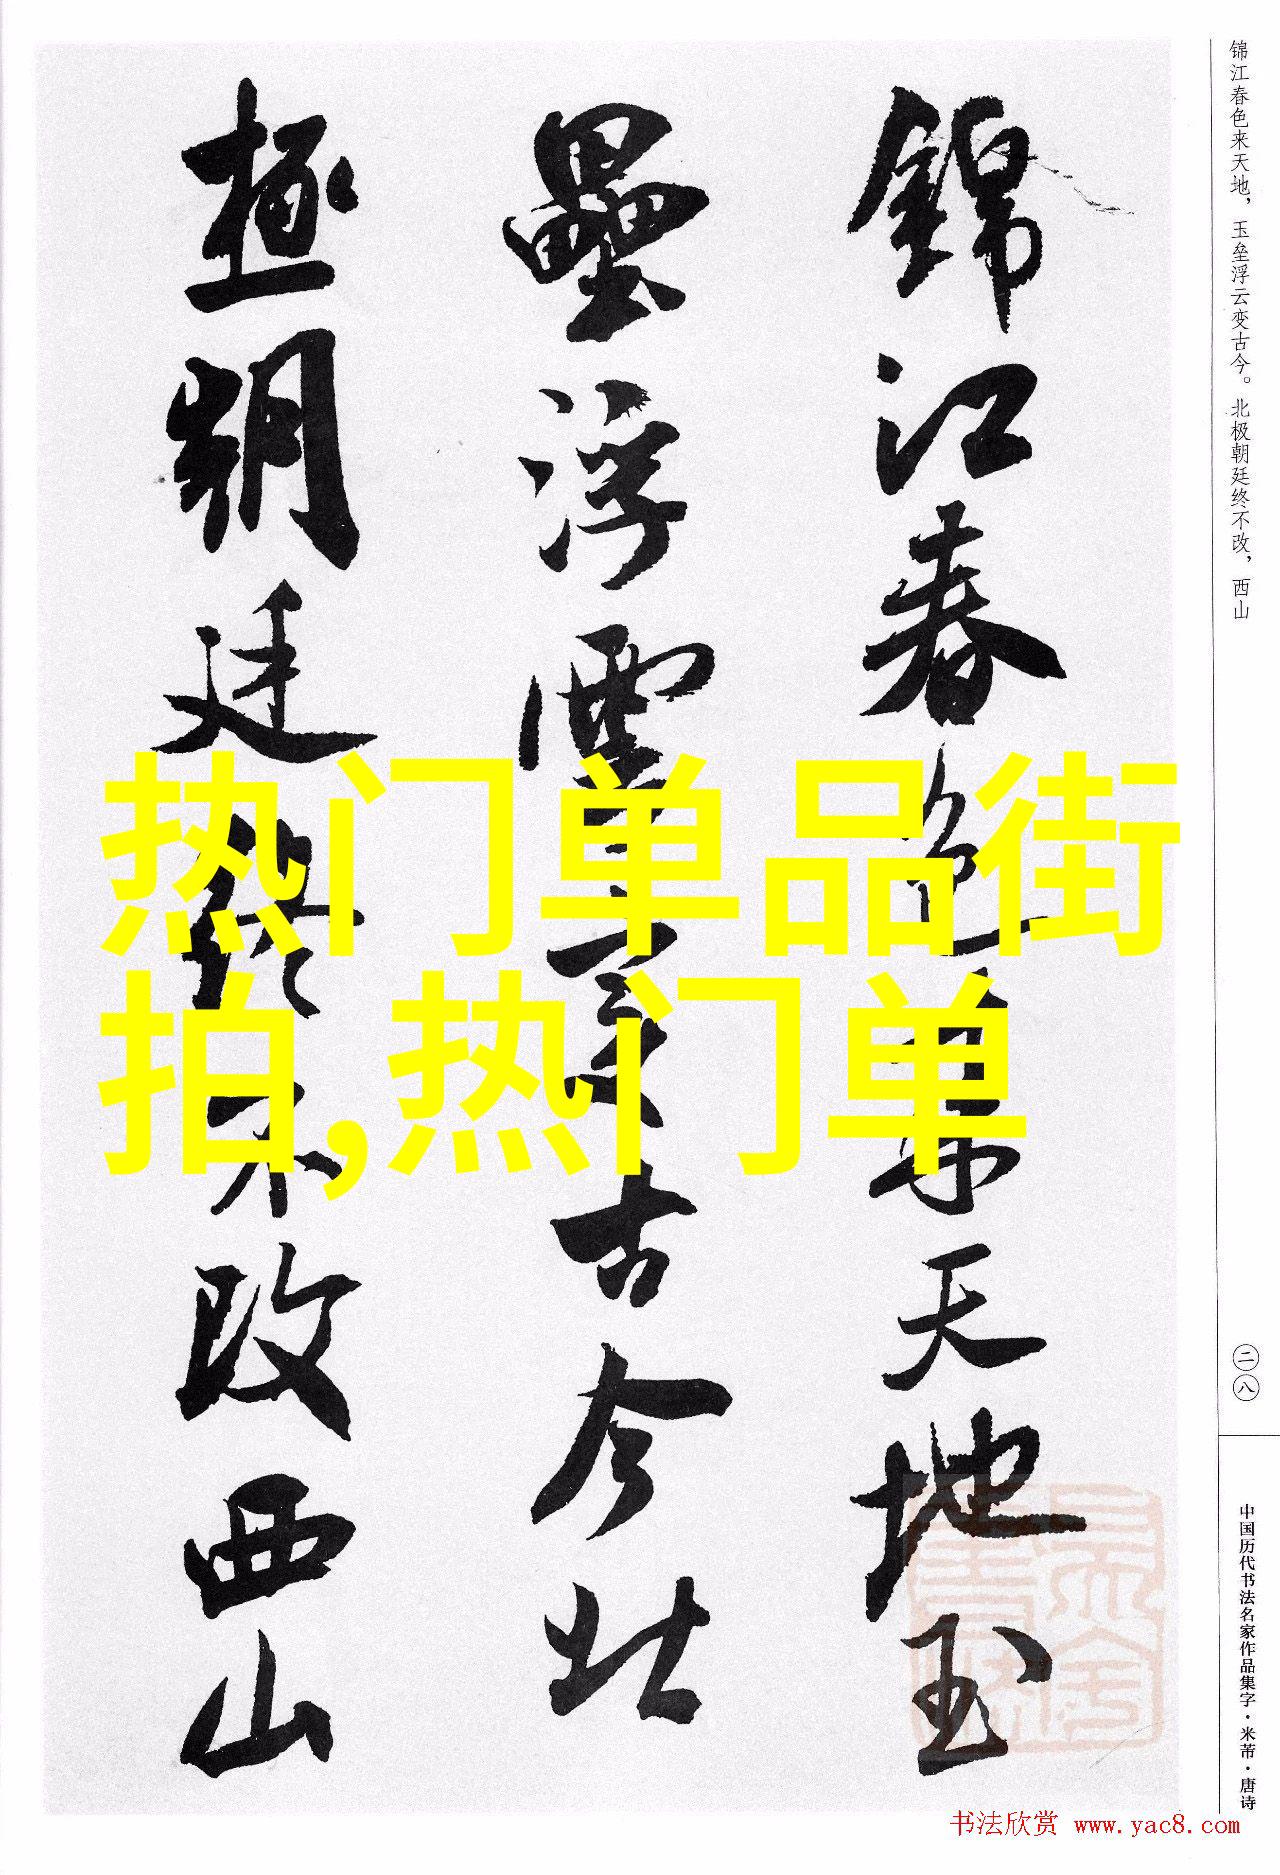 锦江春色来天地，玉垒浮云变古今。北极朝廷终不改，西山
錦江春色来天地玉
壘浮雲變古今北
極朝廷終不改西山
热门单品街
拍,热门单
二八
中国历代书法名家作品集字·米芾·唐诗
书法欣赏 www.yac8.com